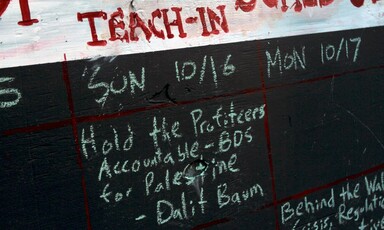 TEACH-IN
5
SUN 10/16
MON 10/17
Hold the Profiteers
Accountable - BDS
for Palestine
- Dalit Baum
Behind the Wal
Crisis, Regulatio